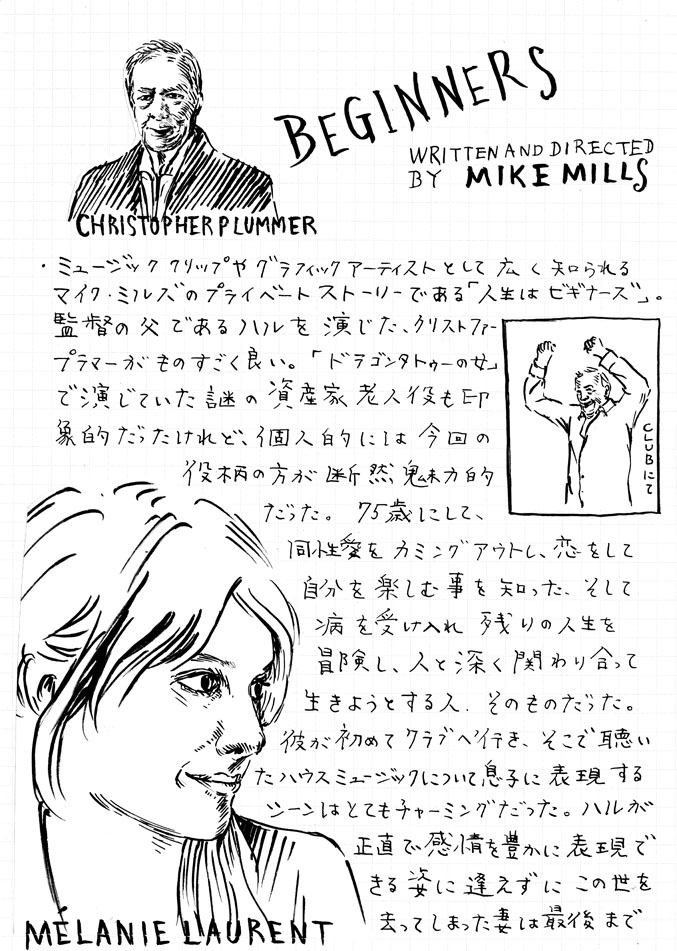 BEGINNERS
WRITTEN AND DIRECTED
BY MIKE MILLS
CHRISTOPHER PLUMMER
・ミュージッククリップやグラフィックアーティストとして広く知られる
マイク・ミルズのプライベートストーリーである「人生はビギナーズ」。
監督の父であるハルを演じた、クリストファー
プラマーがものすごく良い。「ドラゴンタトゥーの女」
で演じていた謎の資産家老人役も印
象的だったけれど、個人的には今回の
役柄の方が断然魅力的
だった。75歳にして、
同性愛をカミングアウトし、恋をして
自分を楽しむ事を知った、そして
病を受け入れ残りの人生を
冒険し、人と深く関わり合って
生きようとする人.そのものだった。
彼が初めてクラブへ行き、そこで聴い
たハウスミュージックについて息子に表現する
シーンはとてもチャーミングだった。ハルが
正直で感情を豊かに表現で
きる姿に逢えずにこの世を
去ってしまった妻は最後まで
CLUBにて
MÉLANIE LAURENT